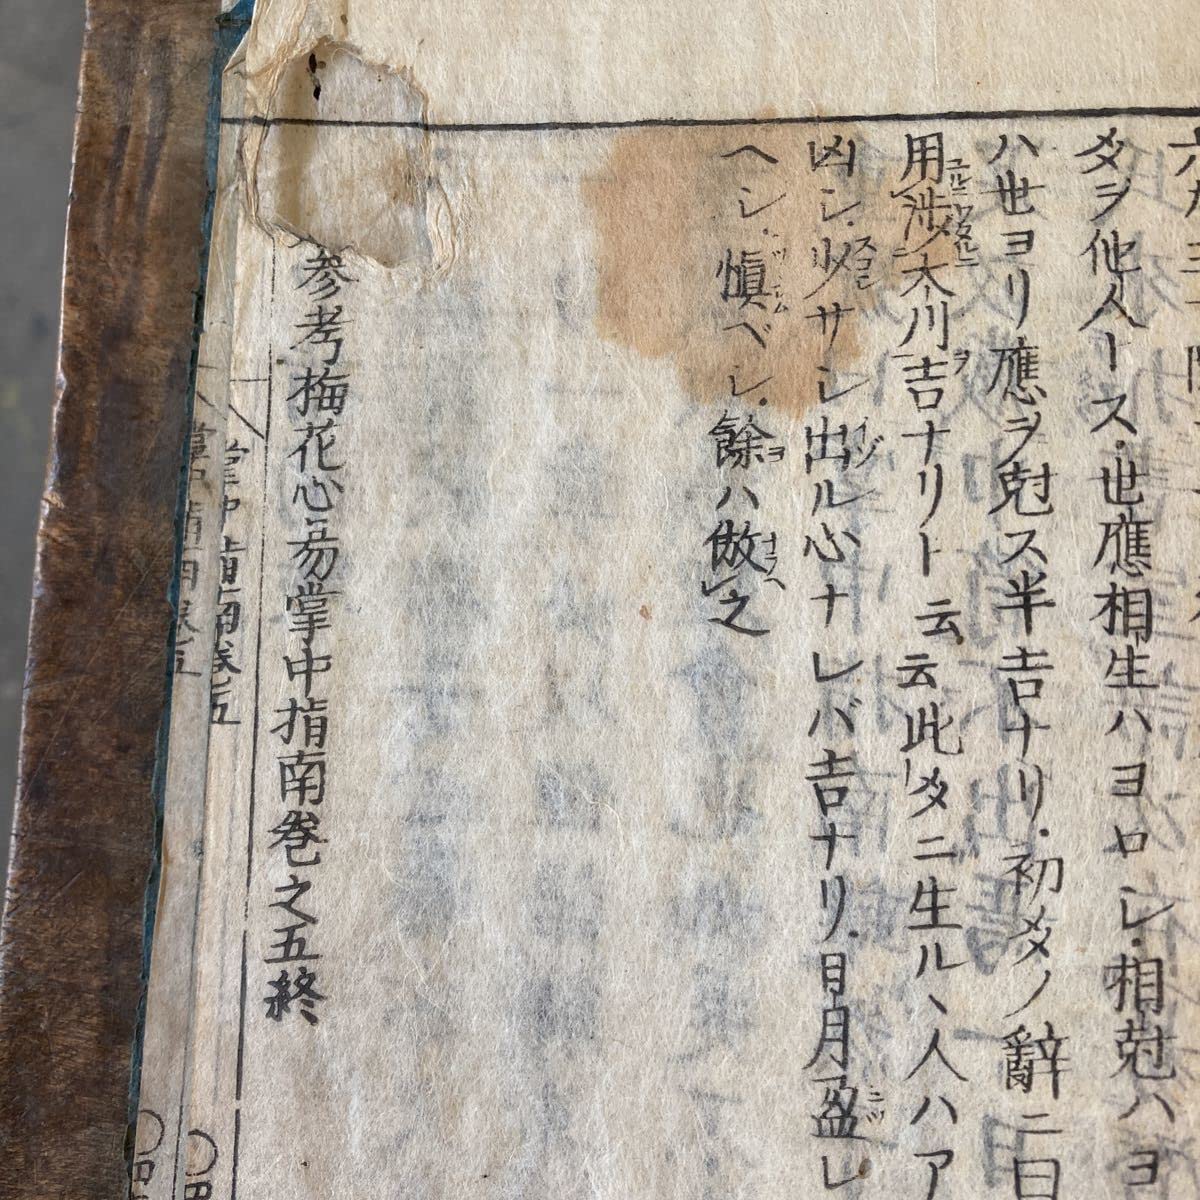 爻ヲ他人ース.世應相生ハヨロシ.相尅ハヨ
ハ世ヨリ應ヲ尅ス半吉ナリ.初爻ノ辭ニ曰
用涉大川吉ナリト云云此爻ニ生ルヽ人ハア
凶シ.少サシ出ル心ナレバ吉ナリ.月盈シ
ヘシ.愼ベシ.餘ハ倣之
參考梅花心易掌中指南卷之五終
掌中指南卷之五